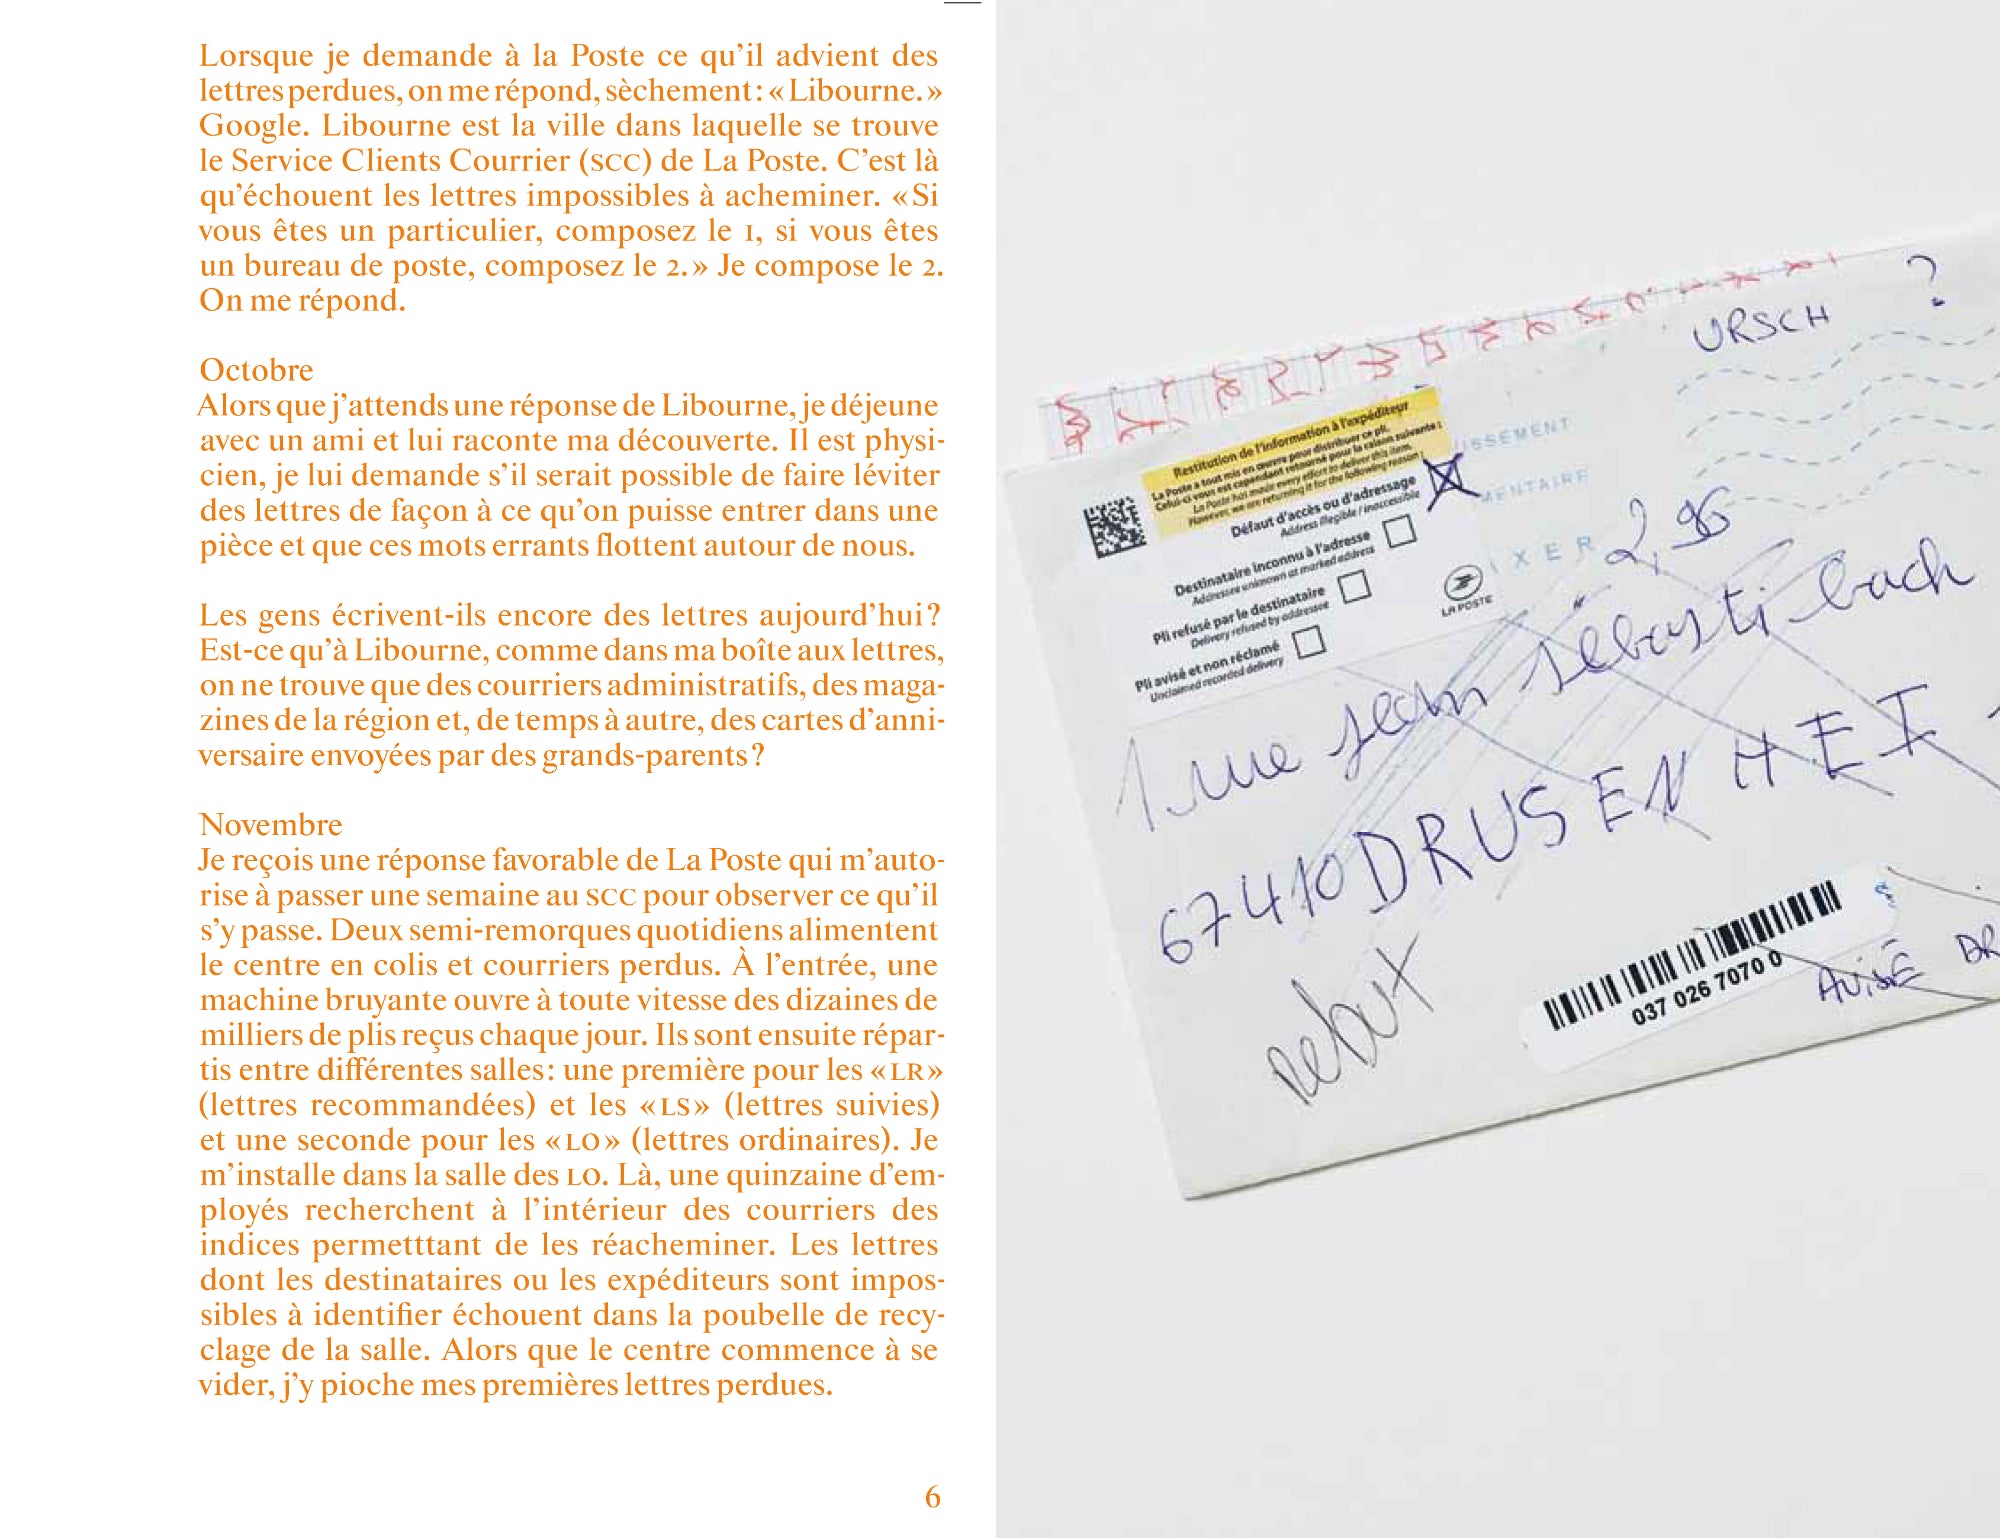 Lorsque je demande à la Poste ce qu’il advient des
lettres perdues, on me répond, sèchement : « Libourne. »
Google. Libourne est la ville dans laquelle se trouve
le Service Clients Courrier (SCC) de La Poste. C’est là
qu’échouent les lettres impossibles à acheminer. « Si
vous êtes un particulier, composez le 1, si vous êtes
un bureau de poste, composez le 2. » Je compose le 2.
On me répond.
Octobre
Alors que j’attends une réponse de Libourne, je déjeune
avec un ami et lui raconte ma découverte. Il est physi-
cien, je lui demande s’il serait possible de faire léviter
des lettres de façon à ce qu’on puisse entrer dans une
pièce et que ces mots errants flottent autour de nous.
Les gens écrivent-ils encore des lettres aujourd’hui ?
Est-ce qu’à Libourne, comme dans ma boîte aux lettres,
on ne trouve que des courriers administratifs, des maga-
zines de la région et, de temps à autre, des cartes d’anni-
versaire envoyées par des grands-parents ?
Novembre
Je reçois une réponse favorable de La Poste qui m’auto-
rise à passer une semaine au SCC pour observer ce qu’il
s’y passe. Deux semi-remorques quotidiens alimentent
le centre en colis et courriers perdus. À l’entrée, une
machine bruyante ouvre à toute vitesse des dizaines de
milliers de plis reçus chaque jour. Ils sont ensuite répar-
tis entre différentes salles : une première pour les « LR »
(lettres recommandées) et les « LS » (lettres suivies)
et une seconde pour les « LO » (lettres ordinaires). Je
m’installe dans la salle des LO. Là, une quinzaine d’em-
ployés recherchent à l’intérieur des courriers des
indices permetttant de les réacheminer. Les lettres
dont les destinataires ou les expéditeurs sont impos-
sibles à identifier échouent dans la poubelle de recy-
clage de la salle. Alors que le centre commence à se
vider, j’y pioche mes premières lettres perdues.
6
URSCH ?
Restitution de l'information à l'expéditeur
La Poste a tout mis en œuvre pour distribuer ce pli.
Celui-ci vous est cependant retourné pour la raison suivante :
La Poste has made every effort to deliver this item.
However, we are returning it for the following reason :
Défaut d'accès ou d'adressage
Address illegible / inaccessible
Destinataire inconnu à l'adresse
Addressee unknown at marked address
Pli refusé par le destinataire
Delivery refused by addressee
Pli avisé et non réclamé
Unclaimed recorded delivery
LA POSTE
ISSEMENT
MENTAIRE
IXER 2,96
1 rue jean sébasti bach
67410 DRUSENHEI
rebut
037 026 7070 0
AVISÉ DR